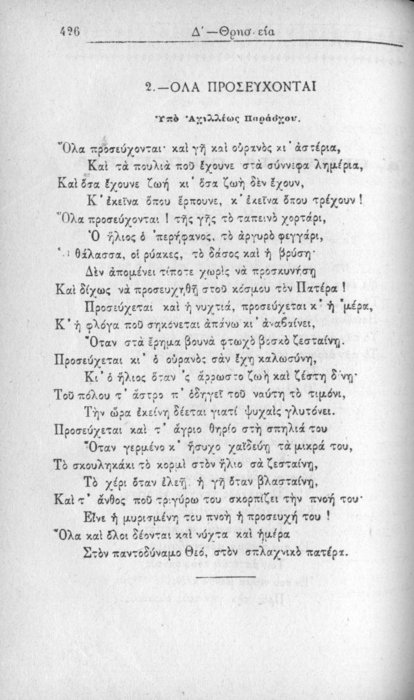 426 Δ΄—Θρησ εία
2.—ΟΛΑ ΠΡΟΣΕΥΧΟΝΤΑΙ
Ὑπὸ Ἀχιλλέως Παράσχου.
Ὅλα προσεύχονται· καὶ γῆ καὶ οὐρανὸς κι᾿ ἀστέρια,
Καὶ τὰ πουλιὰ ποῦ ἔχουνε στὰ σύννεφα λημέρια,
Καὶ ὅσα ἔχουνε ζωή κι᾿ ὅσα ζωὴ δὲν ἔχουν,
Κ᾿ ἐκεῖνα ὅπου ἕρπουνε, κ᾿ ἐκεῖνα ὅπου τρέχουν !
Ὅλα προσεύχονται ! τῆς γῆς τὸ ταπεινὸ χορτάρι,
Ὁ ἥλιος ὁ ᾿περήφανος, τὸ ἀργυρὸ φεγγάρι,
θάλασσα, οἱ ρύακες, τὸ δάσος καὶ ἡ βρύση·
Δὲν ἀπομένει τίποτε χωρὶς νὰ προσκυνήσῃ
Καὶ δίχως νὰ προσευχηθῇ στοῦ κόσμου τὸν Πατέρα !
Προσεύχεται καὶ ἡ νυχτιά, προσεύχεται κ᾿ ἡ ᾿μέρα,
Κ᾿ ἡ φλόγα ποῦ σηκόνεται ἀπάνω κι᾿ ἀναβαίνει,
Ὅταν στὰ ἔρημα βουνὰ φτωχὸ βοσκὸ ζεσταίνῃ.
Προσεύχεται κι᾿ ὁ οὐρανὸς σὰν ἔχῃ καλωσύνη,
Κι᾿ ὁ ἥλιος ὅταν ᾿ς ἄρρωστο ζωὴ καὶ ζέστη δίνῃ·
Τοῦ πόλου τ᾿ ἄστρο π᾿ ὁδηγεῖ τοῦ ναύτη τὸ τιμόνι,
Τὴν ὥρα ἐκείνη δέεται γιατί ψυχαὶς γλυτόνει.
Προσεύχεται καὶ τ᾿ ἄγριο θηρίο στὴ σπηλιά του
Ὅταν γερμένο κ᾿ ἥσυχο χαϊδεύῃ τὰ μικρά του,
Τὸ σκουληκάκι τὸ κορμὶ στὸν ἥλιο σὰ ζεσταίνῃ,
Τὸ χέρι ὅταν ἐλεῇ, ἡ γῆ ὅταν βλασταίνῃ,
Καὶ τ᾿ ἄνθος ποῦ τριγύρω του σκορπίζει τὴν πνοή του·
Εἶνε ἡ μυρισμένη του πνοὴ ἡ προσευχή του !
Ὅλα καὶ ὅλοι δέονται καὶ νύχτα καὶ ἡμέρα
Στὸν παντοδύναμο Θεό, στὸν σπλαχνικὸ πατέρα.